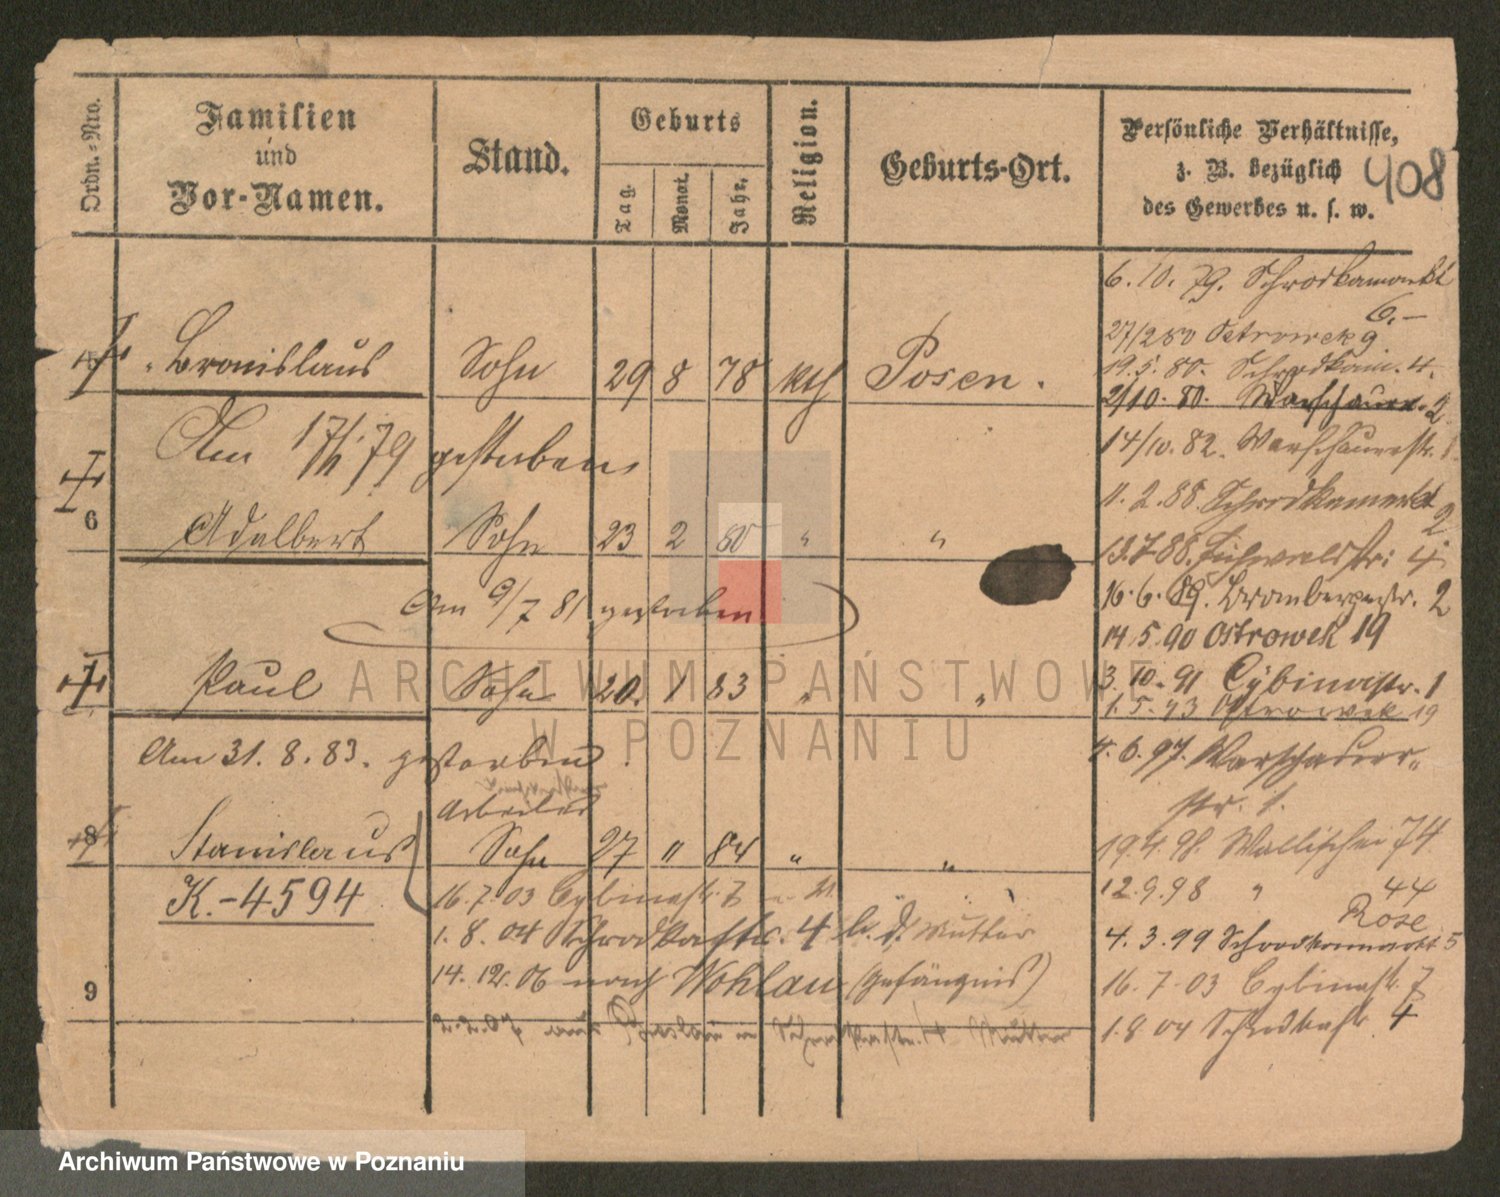 Ordn.-Nro.
Familien
und
Vor-Namen.
Stand.
Geburts
Tag.
Monat.
Jahr.
Religion.
Geburts-Ort.
Persönliche Verhältnisse,
z. B. bezüglich
des Gewerbes u. s. w.
408
Bronislaus Sohn 29 8 78 kth Posen.
Am 17/11 79 gestorben
6 Adalbert Sohn 23 2 80 " "
Am 9/7 81 gestorben
Paul Sohn 20. 1 83 " "
Am 31. 8. 83. gestorben.
Arbeiter
8 Stanislaus Sohn 27 " 84 " "
K.-4594
16. 7. 03 Cybinastr. 7
1. 8. 04 Schrodkastr. 4 b. d. Mutter
14. 12. 06 nach Wohlau (Gefängnis)
9
6. 10. 79. Schrodkamarkt
6.-
27/2 80 Ostrowek 9
19. 5. 80. Schrodkam. 4.
2/10. 80. Warschauer. 2
14/10. 82. Warschauerstr. 1.
11. 2. 88. Schrodkamarkt 2
13. 7 88. Eichwaldstr: 4
16. 6. 89. Brombergerstr. 2
14. 5. 90 Ostrowek 19
3. 10. 91 Cybinastr. 1
1. 5. 93 Ostrowek 19
4. 6. 97. Warschauer-
str. 1.
19. 4. 98. Wallischei 74
12. 9. 98 " 44
Rose
4. 3. 99 Schrodkamarkt 5
16. 7. 03 Cybinastr. 7
1. 8 04 Schrodkastr. 4
ARCHIWUM PAŃSTWOWE
W POZNANIU
Archiwum Państwowe w Poznaniu